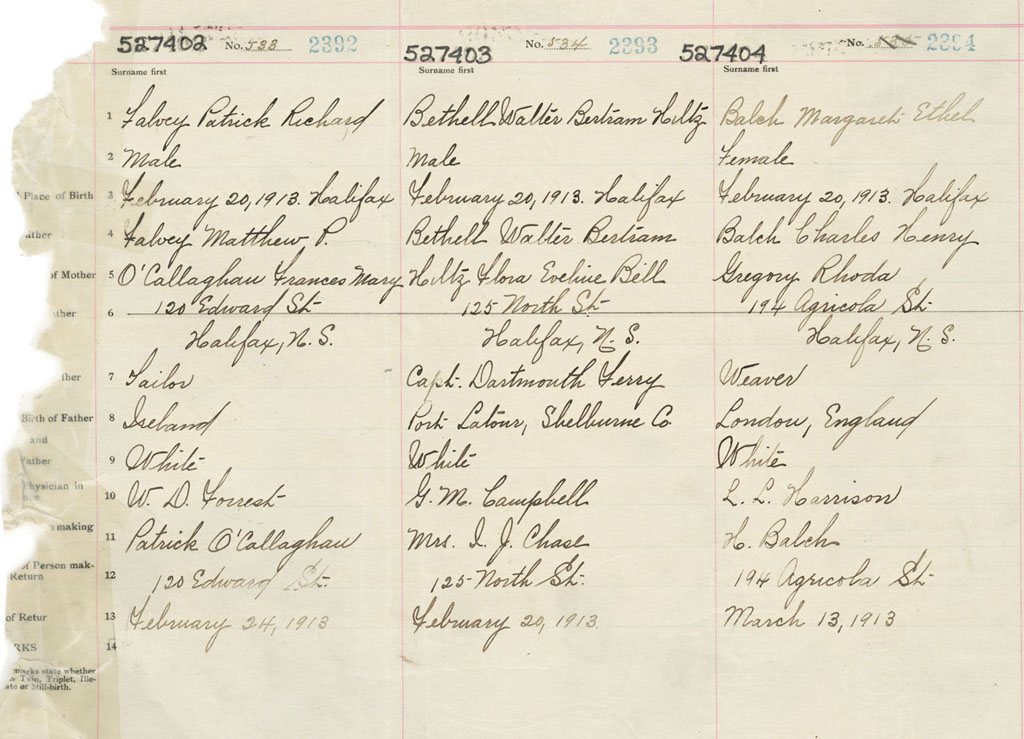 527402 No. 533 2392
527403 No. 534 2393
527404 No. 2394
Surname first Surname first Surname first
1 Falvey Patrick Richard Bethell Walter Bertram Hiltz Balch Margaret Ethel
2 Male Male Female
Place of Birth 3 February 20, 1913. Halifax February 20, 1913. Halifax February 20, 1913. Halifax
ather 4 Falvey Matthew P. Bethell Walter Bertram Balch Charles Henry
of Mother 5 O'Callaghan Frances Mary Hiltz Flora Eveline Bell Gregory Rhoda
ther 6 120 Edward St 125 North St 194 Agricola St
Halifax, N. S. Halifax, N. S. Halifax, N. S.
ther 7 Tailor Capt. Dartmouth Ferry Weaver
Birth of Father 8 Ireland Port Latour, Shelburne Co London, England
and
Father 9 White White White
Physician in
10 W. D. Forrest G. M. Campbell L. L. Harrison
making
11 Patrick O'Callaghan Mrs. I. J. Chase H. Balch
of Person mak-
Return 12 120 Edward St. 125 North St. 194 Agricola St.
of Retur 13 February 24, 1913 February 20, 1913 March 13, 1913
RKS 14
marks state whether
a Twin, Triplet, Ille-
ate or Still-birth.